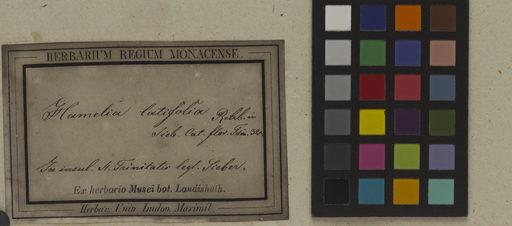 HERBARIUM REGIUM MONACENSE.
Hamelia latifolia Rchb. in
Sieb. Cat. flor. Trin.
In insul. St. Trinitatis legt. Sieber.
Ex herbario Musei bot. Landishuth.
Herbar. Univ. Ludov. Maximil.